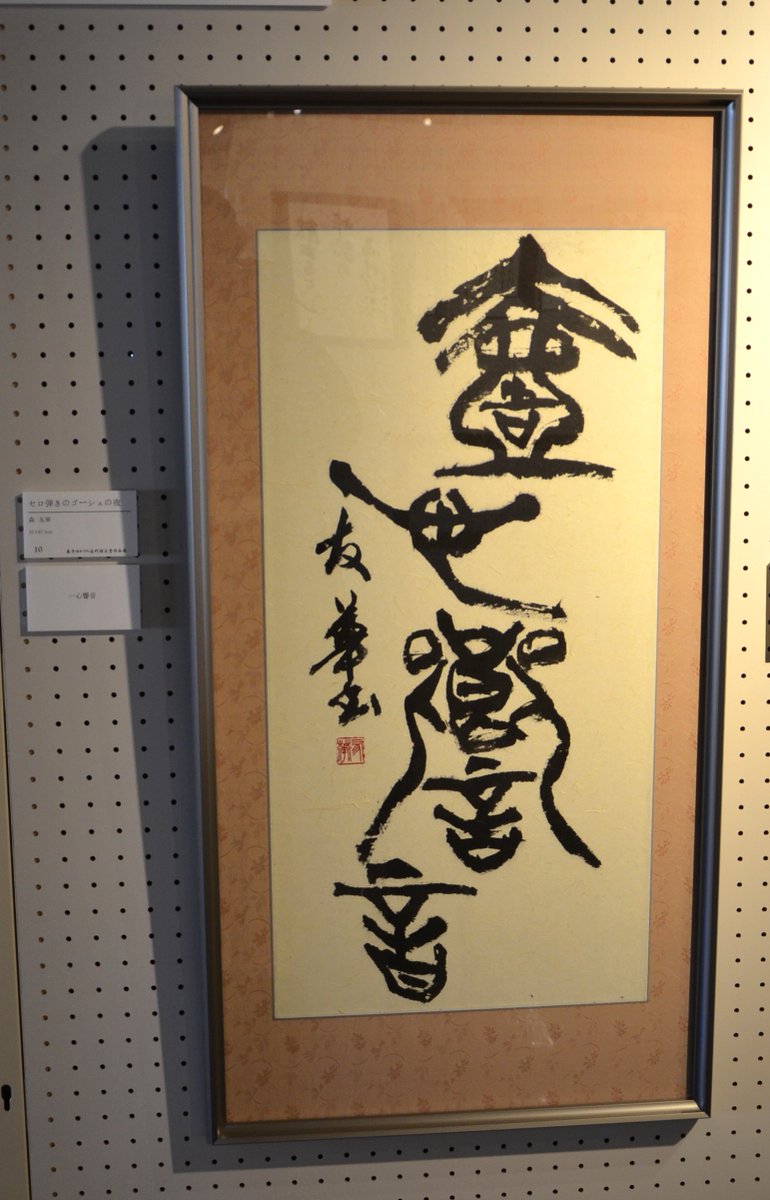 壹心響音
友華書
セロ弾きのゴーシュの夜
森 友華
10
一心響音